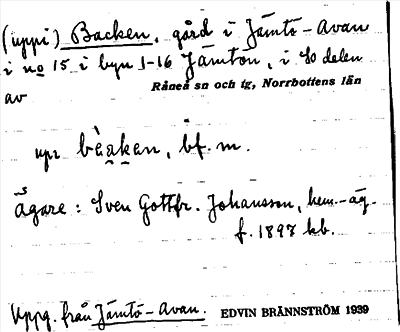 (uppi) Backen, gård i Jämtö-Avan
i no 15 i byn 1-16 Jämtön, i So delen
av Råneå sn och tg, Norrbottens län
upr bèaken, bf. m.
Ägare: Sven Gottfr. Johansson, hem.-äg.
f. 1897 hb.
Uppg. från Jämtö-Avan. EDVIN BRÄNNSTRÖM 1939